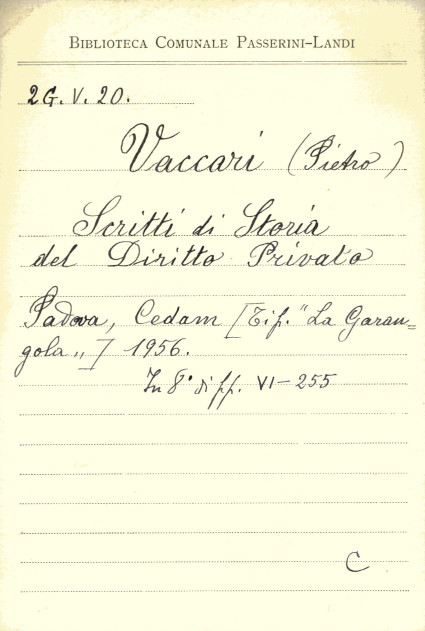 BIBLIOTECA COMUNALE PASSERINI-LANDI
2G. V. 20.
Vaccari (Pietro)
Scritti di Storia
del Diritto Privato
Padova, Cedam [Tip. "La Garan=
gola„] 1956.
In 8° di pp. VI-255
C